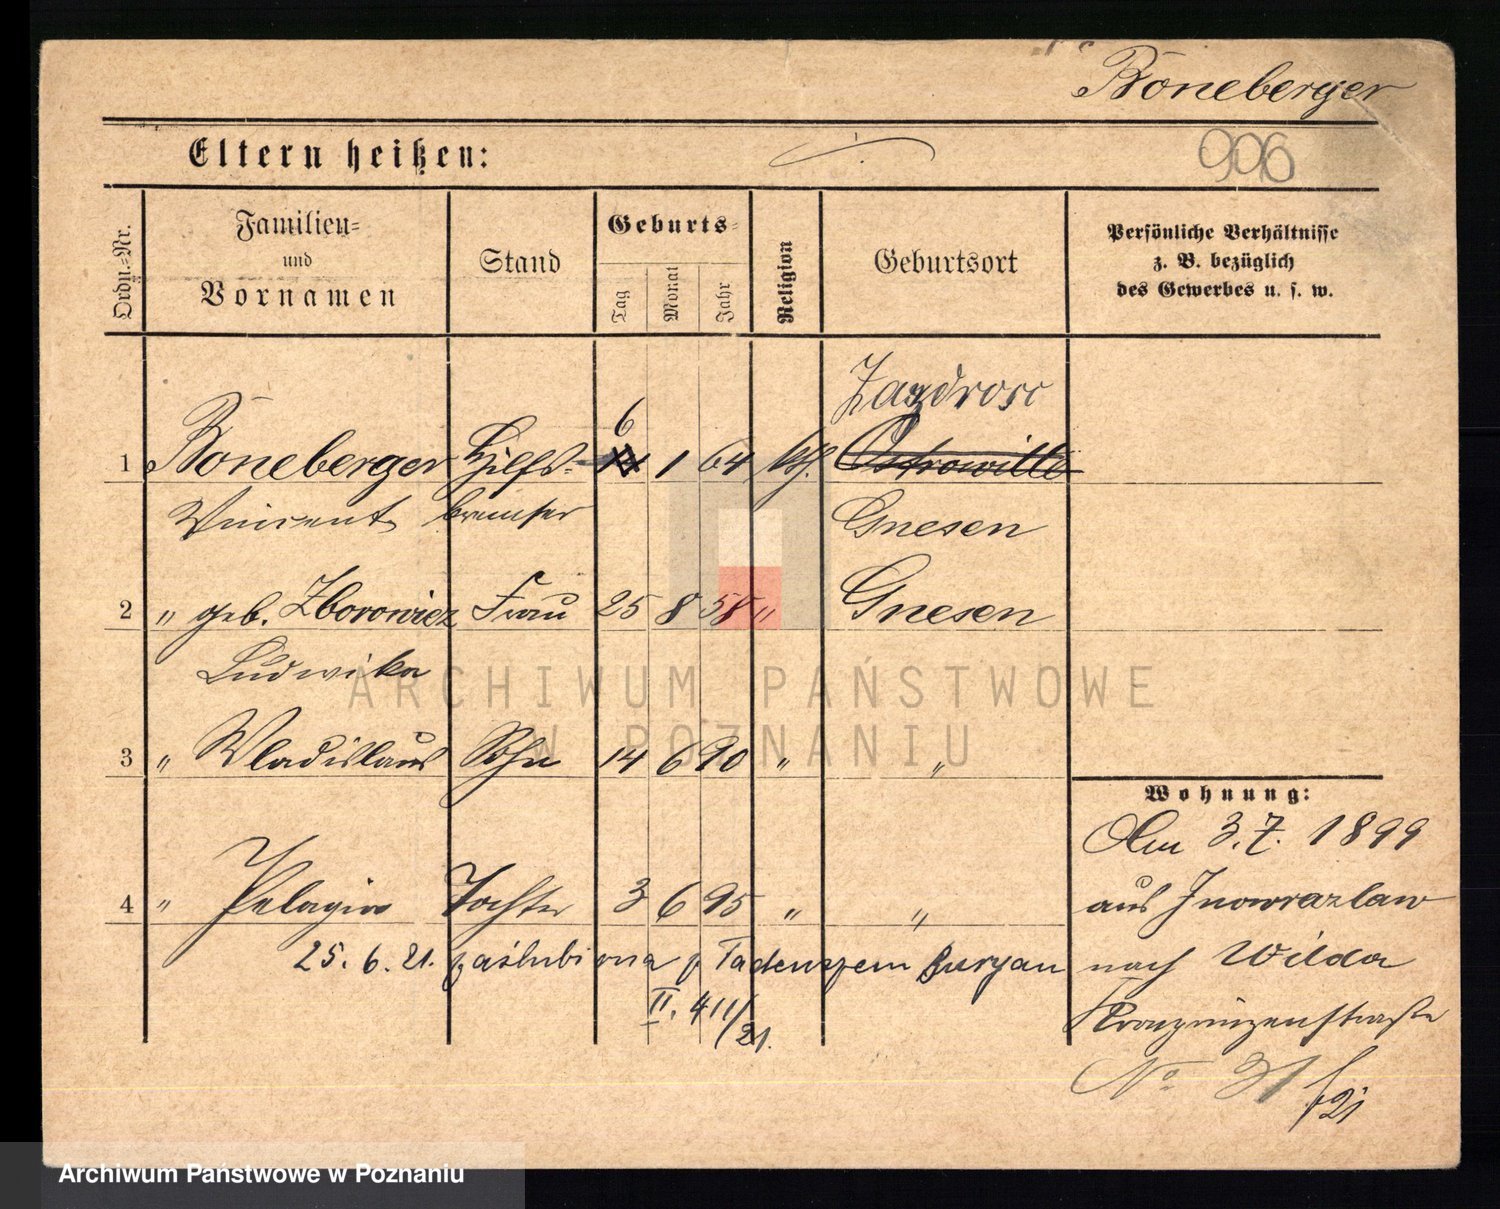 Böneberger
Eltern heißen:
996
Ordn.-Nr.
Familien-
und
Vornamen
Stand
Geburts-
Tag
Monat
Jahr
Religion
Geburtsort
Persönliche Verhältnisse
z. B. bezüglich
des Gewerbes u. s. w.
Zazdrosc
6
1 Böneberger Hilfs- 1 64 kth. Ostrowitte
Vincent bremser Gnesen
2 " geb. Zborowicz Frau 25 8 58 " Gnesen
Ludwika
3 " Wladislaus Sohn 14 6 90 " "
Wohnung:
Am 3.7. 1899
4 " Pelagia Tochter 3 6 95 " "
aus Inowrazlaw
25. 6. 21. zaślubiona z Tadeuszem Buryan
nach Wilda
II. 411/21.
Kronprinzenstraße
No 31 /21
ARCHIWUM PAŃSTWOWE
W POZNANIU
Archiwum Państwowe w Poznaniu